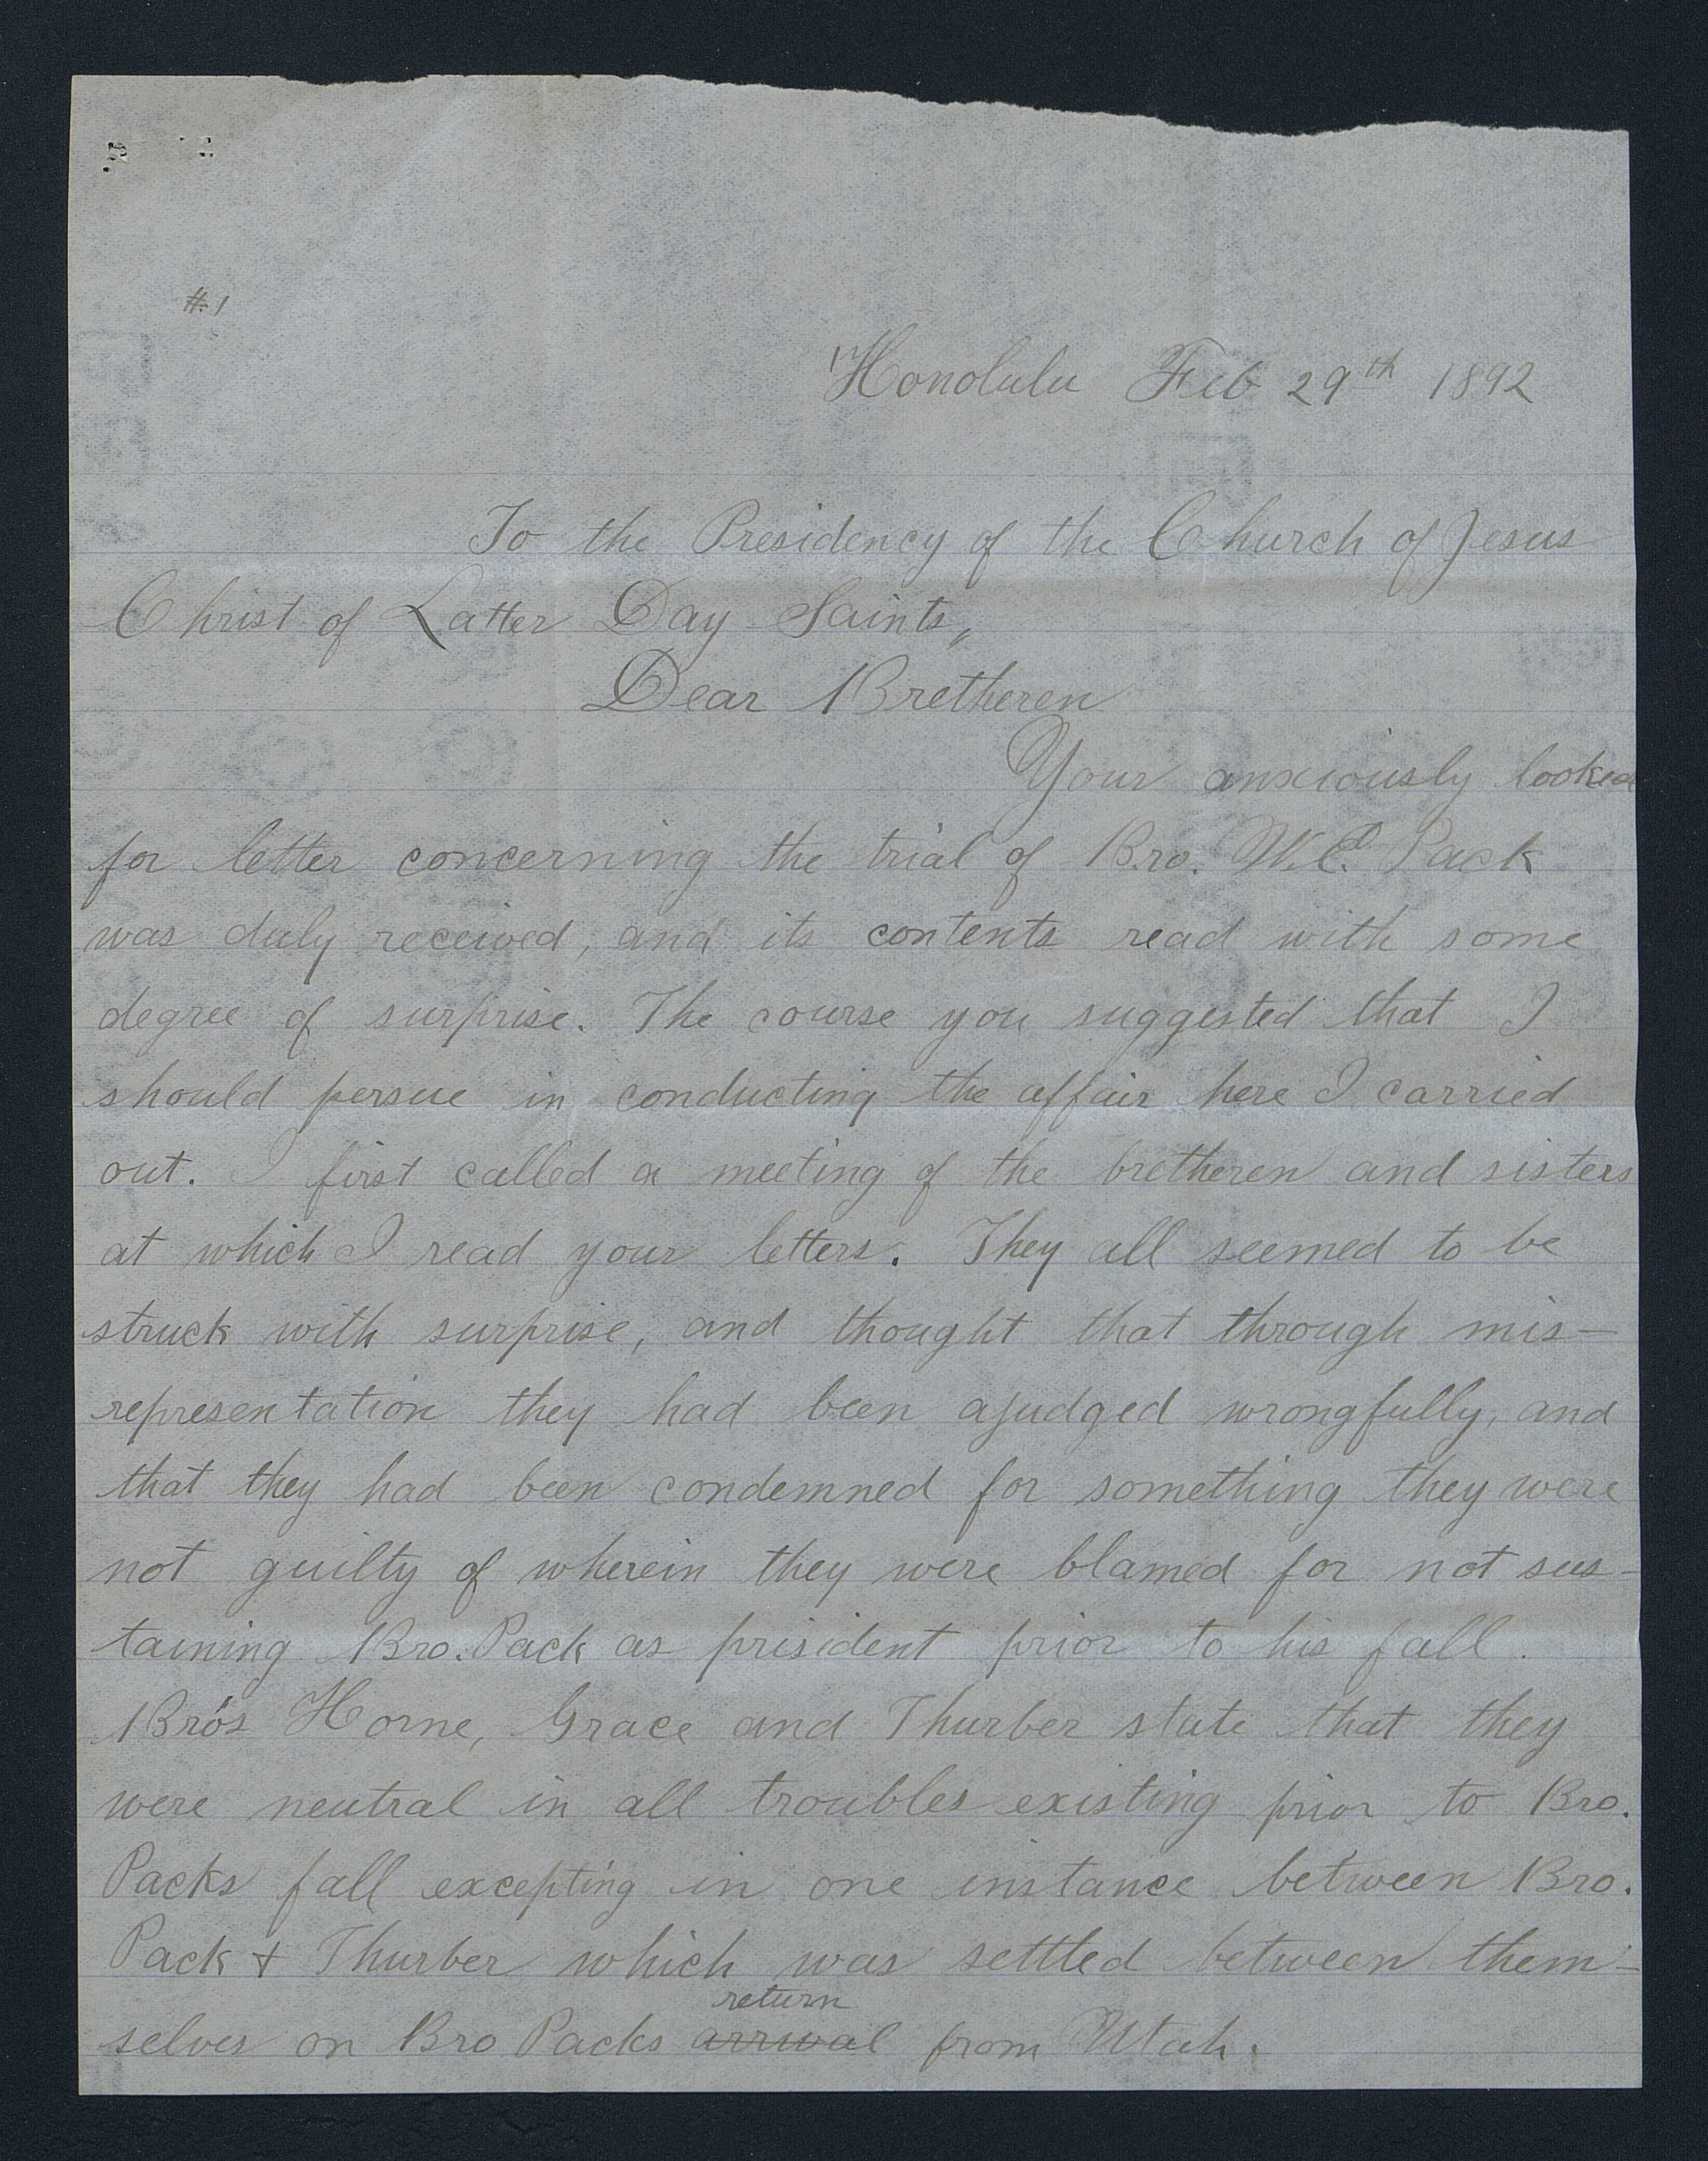 #.1
Honolulu Feb 29th 1892
To the Presidency of the Church of Jesus
Christ of Latter Day Saints,,
Dear Bretheren
Your anxiously looked
for letter concerning the trial of Bro. W.E. Pack
was duly received, and its contents read with some
degree of surprise. The course you suggested that I
should persue in conducting the affair here I carried
out. I first called a meeting of the bretheren and sisters
at which I read your letters. They all seemed to be
struck with surprise, and thought that through mis-
representation they had been ajudged wrongfully, and
that they had been condemned for something they were
not guilty of wherein they were blamed for not sus-
taining Bro. Pack as president prior to his fall.
Bro's Horne, Grace and Thurber state that they
were neutral in all troubles existing prior to Bro.
Packs fall excepting in one instance between Bro.
Pack & Thurber which was settled between them-
return
selves on Bro Packs arrival from Utah.